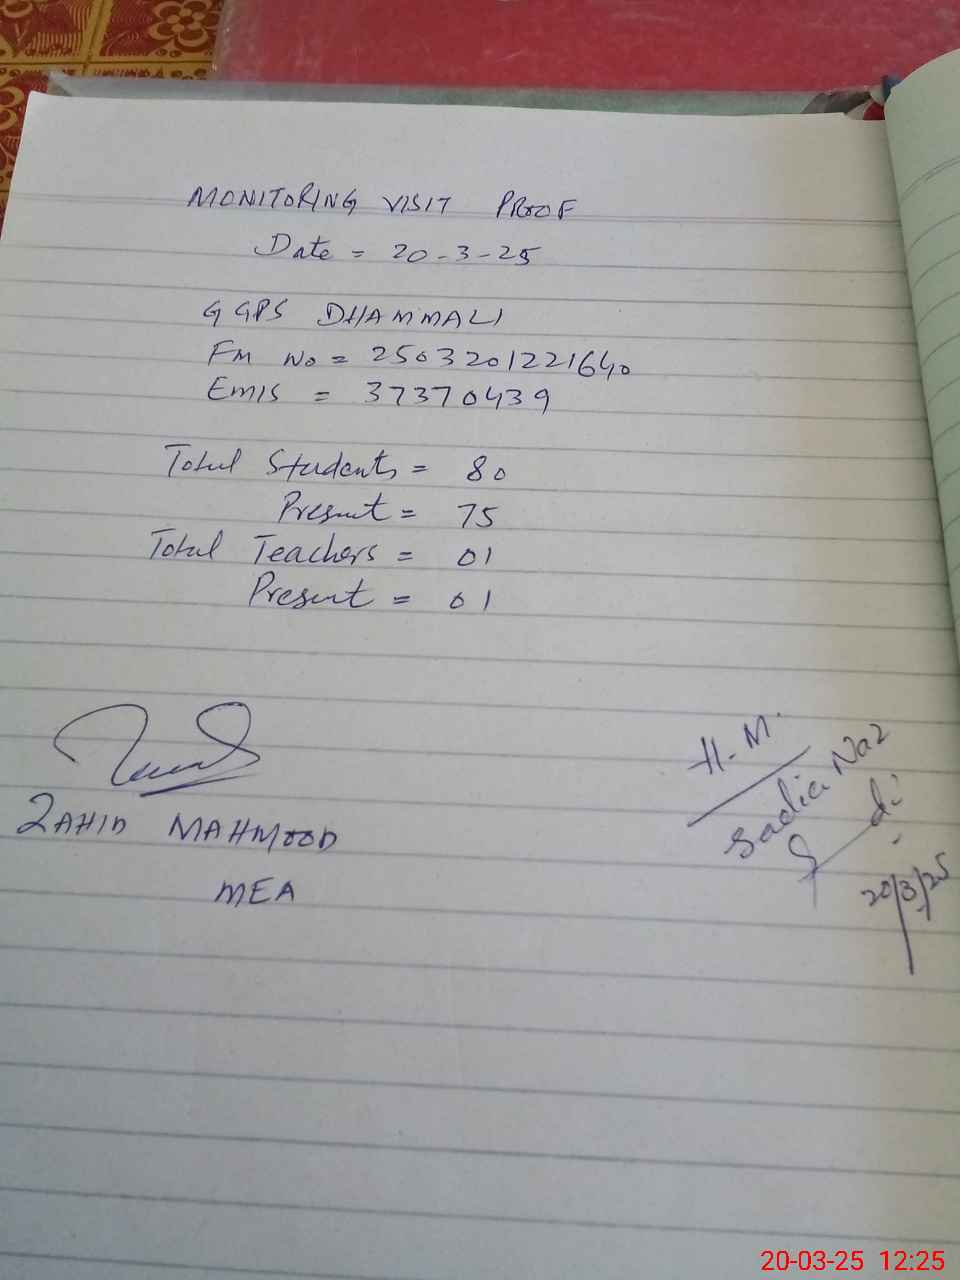 MONITORING VISIT PROOF
Date = 20-3-25
GGPS DHAMMALI
Fm No = 2503201221640
Emis = 37370439
Total Students = 80
Present = 75
Total Teachers = 01
Present = 01
ZAHID MAHMOOD
MEA
H.M.
Sadia Naz
20/3/25
20-03-25 12:25